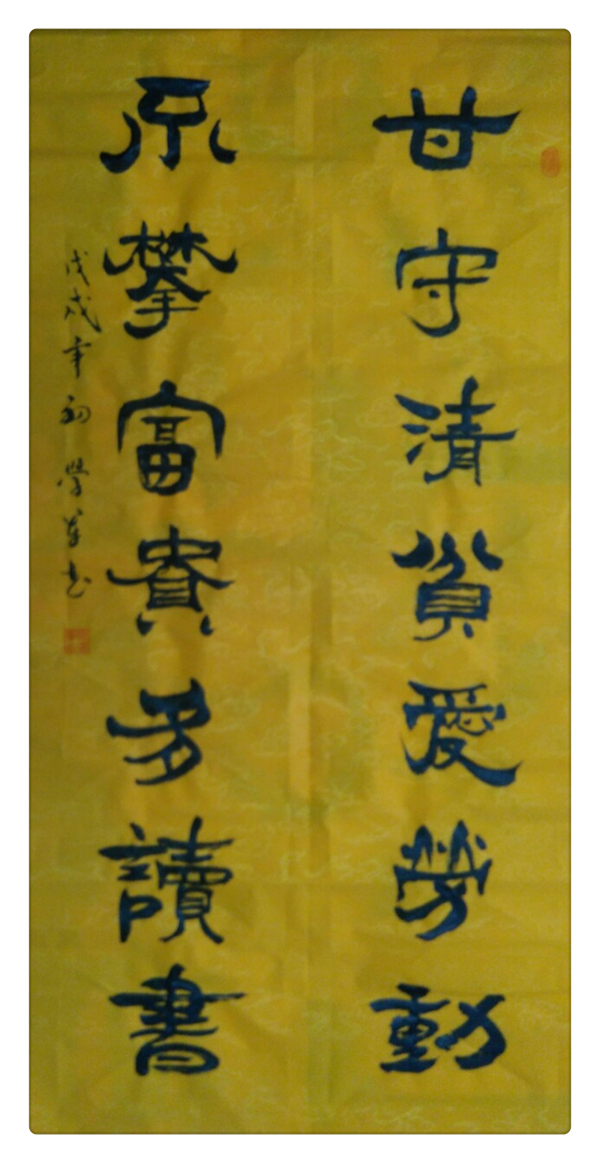 甘守清貧愛勞動
不攀富貴多讀書
戊戌年初學書